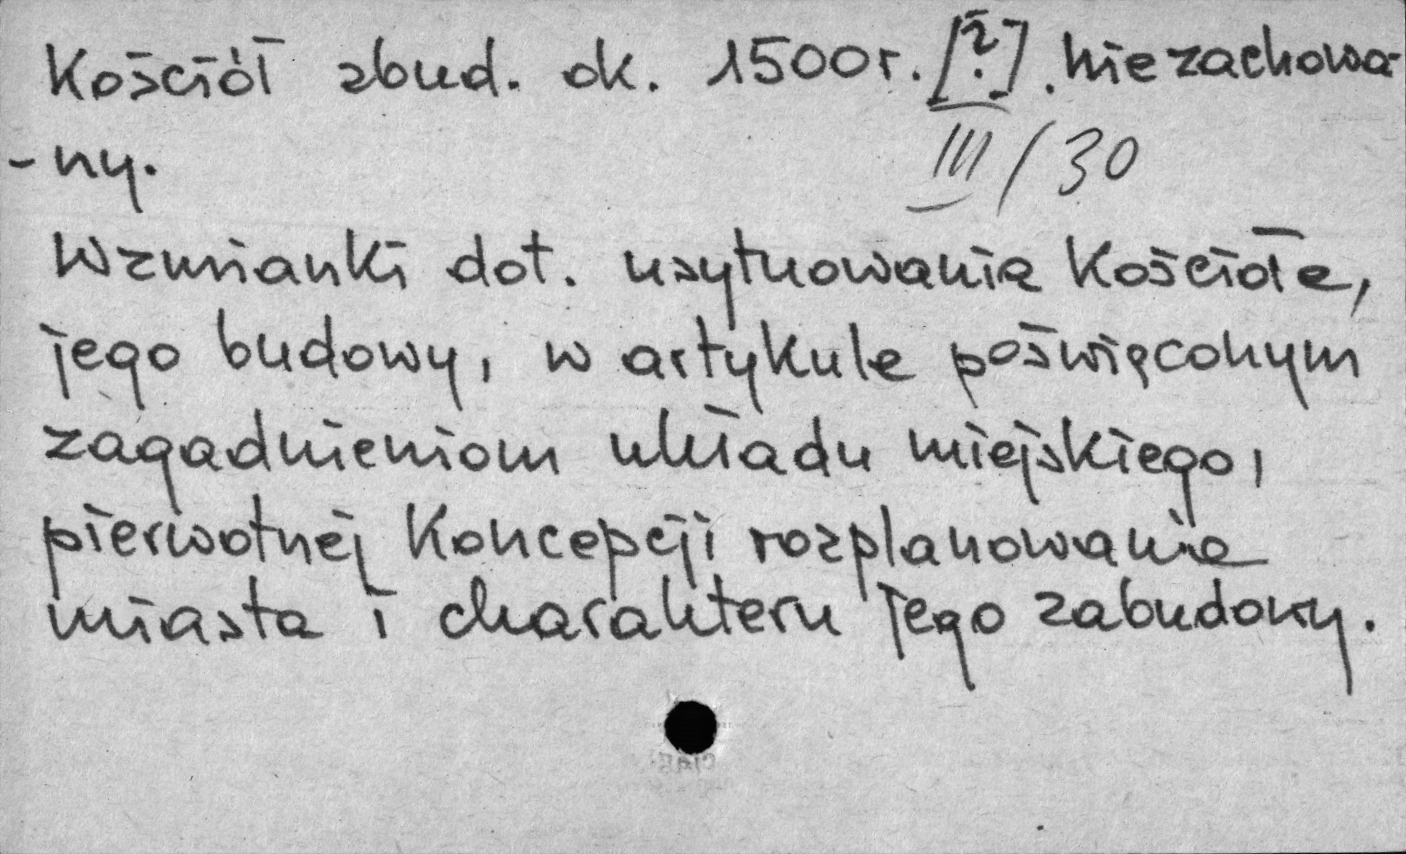 Kościół zbud. ok. 1500 r. [?]. nie zachowa-
-ny.
III/30
Wzmianki dot. usytuowania kościoła,
jego budowy, w artykule poświęconym
zagadnieniom układu miejskiego,
pierwotnej koncepcji rozplanowania
miasta i charakteru jego zabudowy.